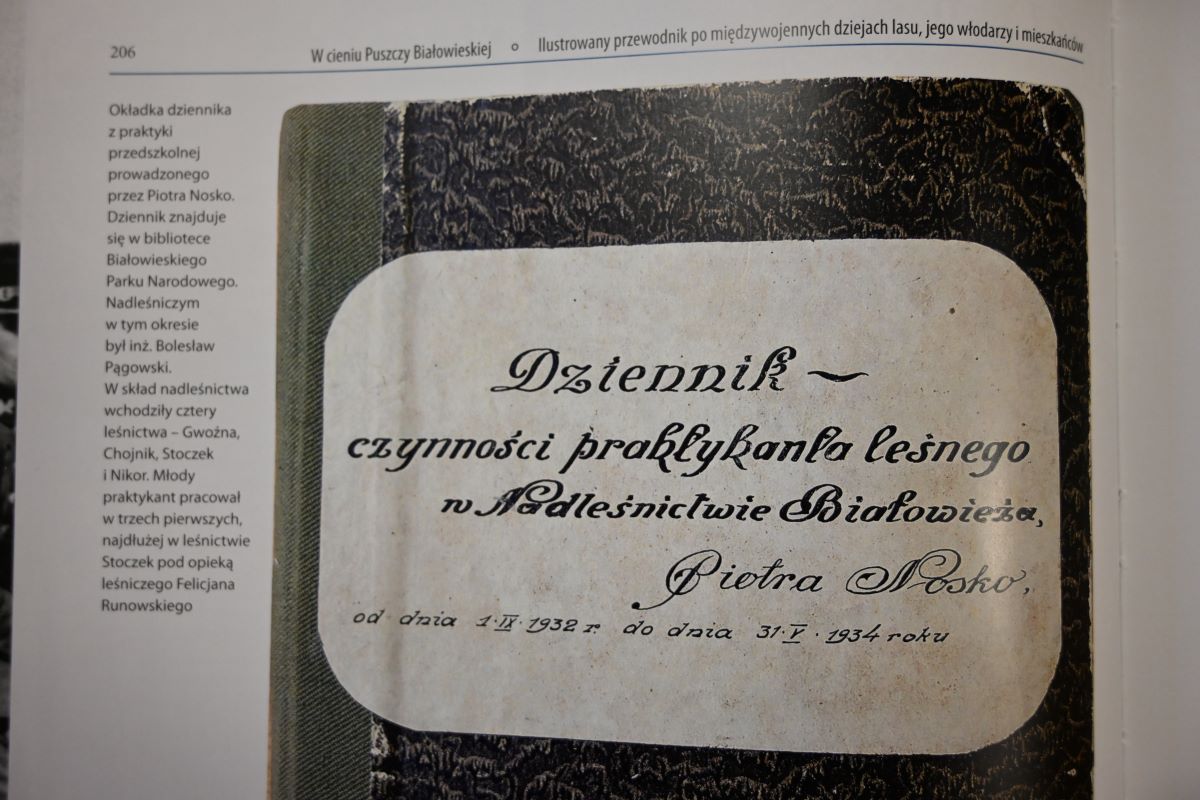 206
W cieniu Puszczy Białowieskiej ° Ilustrowany przewodnik po międzywojennych dziejach lasu, jego włodarzy i mieszkańców
Okładka dziennika
z praktyki
przedszkolnej
prowadzonego
przez Piotra Nosko.
Dziennik znajduje
się w bibliotece
Białowieskiego
Parku Narodowego.
Nadleśniczym
w tym okresie
był inż. Bolesław
Pągowski.
W skład nadleśnictwa
wchodziły cztery
leśnictwa – Gwoźna,
Chojnik, Stoczek
i Nikor. Młody
praktykant pracował
w trzech pierwszych,
najdłużej w leśnictwie
Stoczek pod opieką
leśniczego Felicjana
Runowskiego
Dziennik ~
czynności praktykanta leśnego
w Nadleśnictwie Białowieża,
Piotra Nosko,
od dnia 1·IX·1932 r. do dnia 31·V·1934 roku